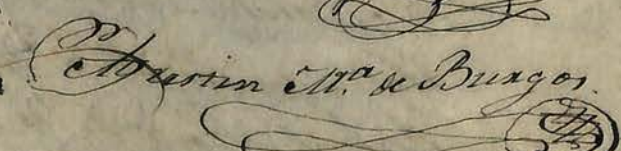 Austin M.ª de Burgos.